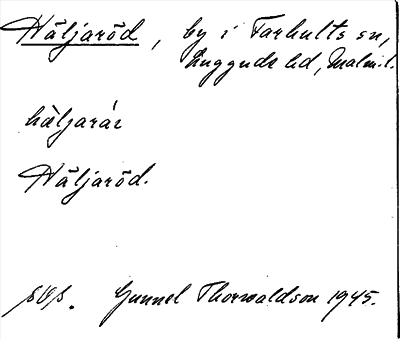 Häljaröd, by i Farhults sn,
Luggude hd, Malm. l.
häljarár
Häljaröd.
Gunnel Thorwaldson 1945.